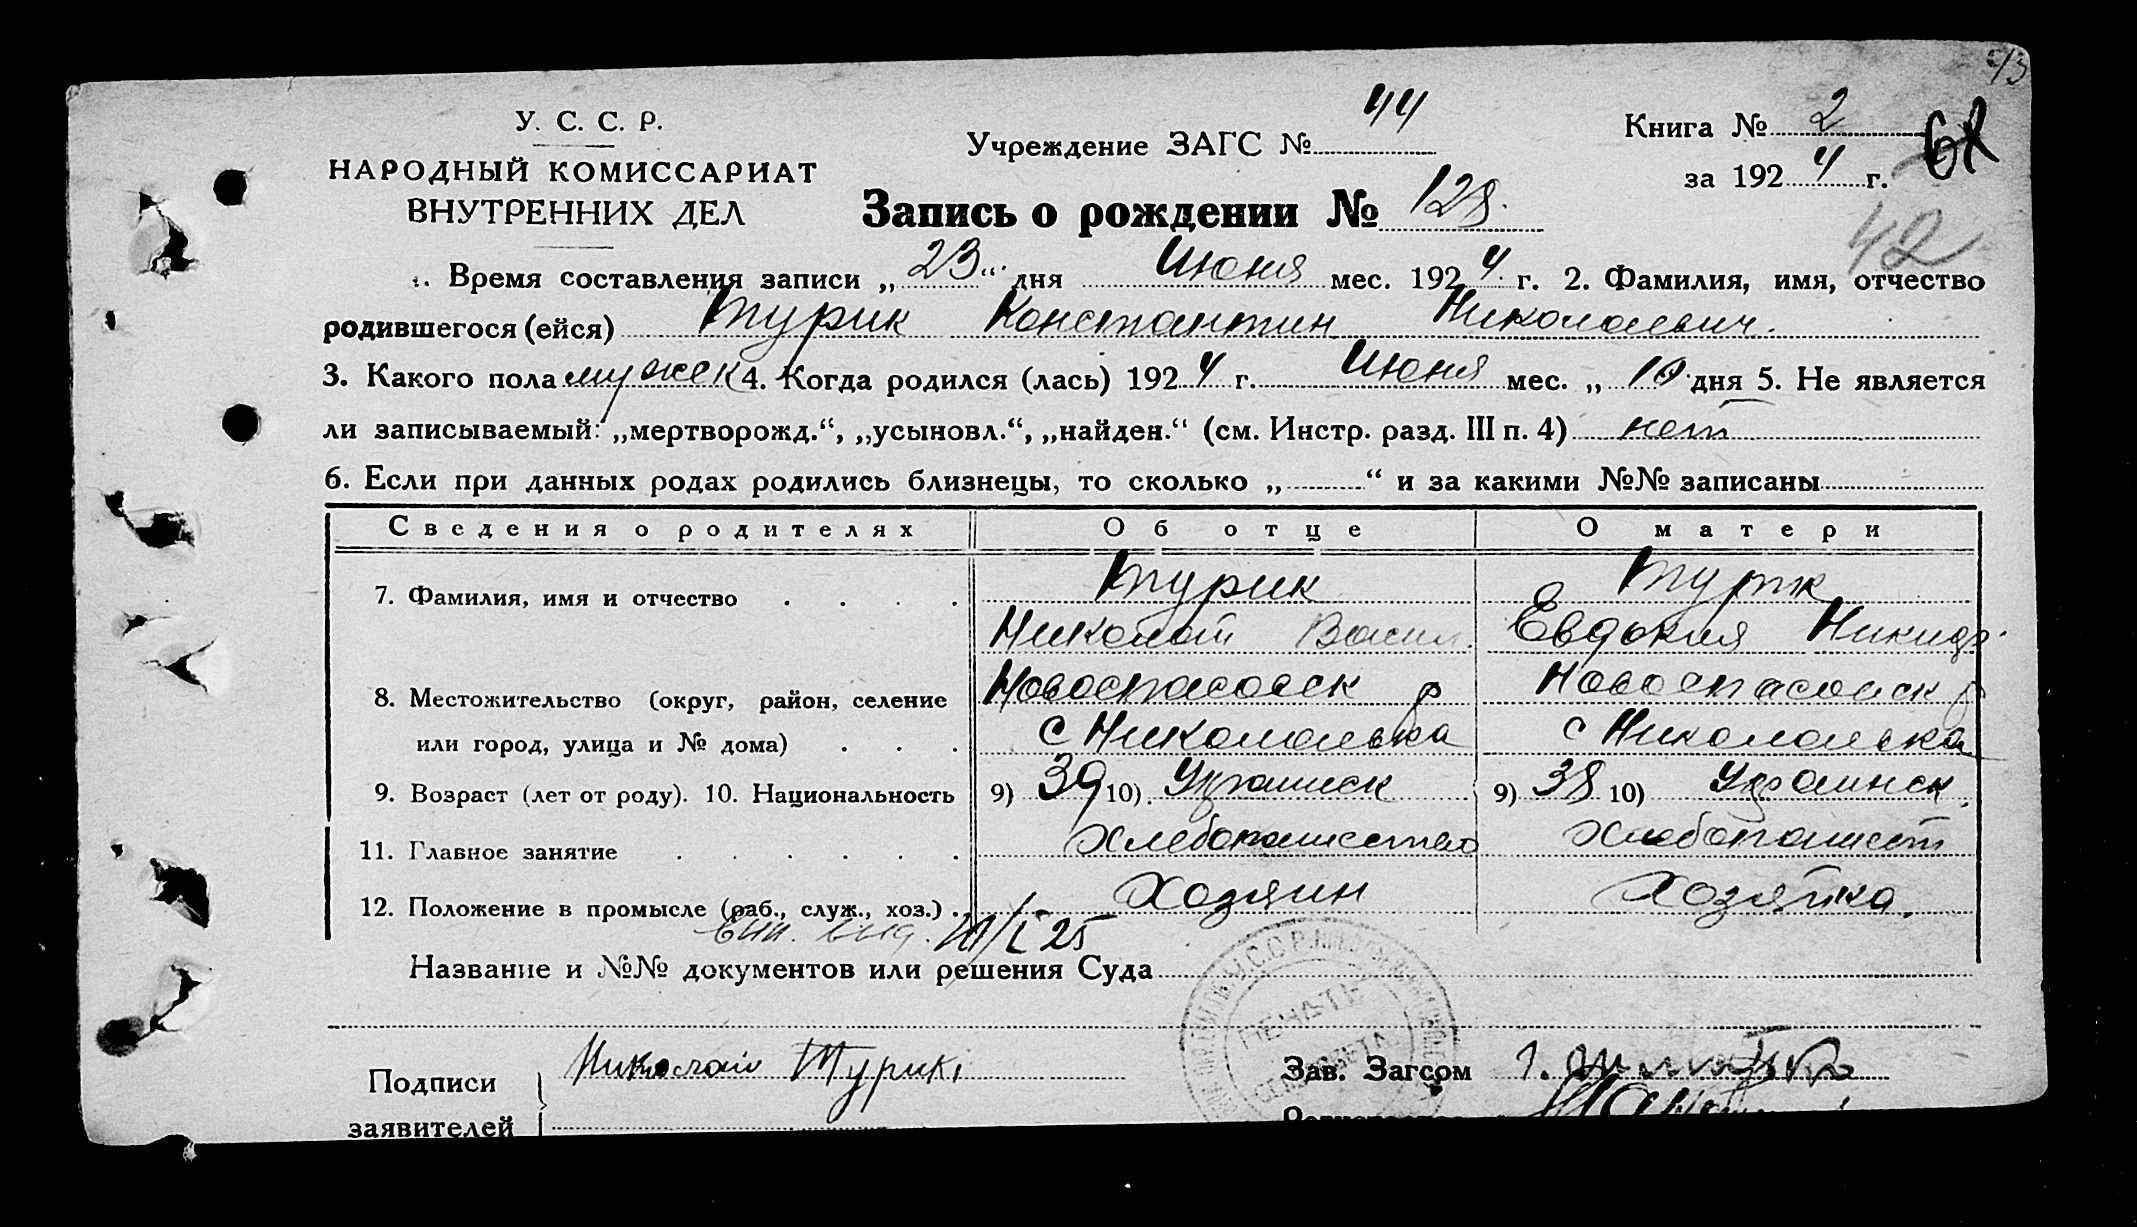 43
У. С. С. Р.
НАРОДНЫЙ КОМИССАРИАТ
ВНУТРЕННИХ ДЕЛ
Учреждение ЗАГС № 44
Книга № 2
за 1924 г.
42
Запись о рождении № 128.
1. Время составления записи „23“ дня Июня мес. 1924 г. 2. Фамилия, имя, отчество
родившегося (ейся) Турик Константин Николаевич.
3. Какого пола мужск 4. Когда родился (лась) 1924 г. Июня мес. „10 дня 5. Не является
ли записываемый: „мертворожд.“, „усыновл.“, „найден.“ (см. Инстр. разд. III п. 4) нет
6. Если при данных родах родились близнецы, то сколько „ “ и за какими №№ записаны
Сведения о родителях Об отце О матери
7. Фамилия, имя и отчество Турик Турик
Николай Васил. Евдокия Никид.
8. Местожительство (округ, район, селение Новоспасовск р Новоспасовск р
или город, улица и № дома) с Николаевка с Николаевка
9. Возраст (лет от роду). 10. Национальность 9) 39 10) Украинск 9) 38 10) Украинск.
11. Главное занятие Хлебопашество Хлебопашест
12. Положение в промысле (раб., служ., хоз.) Хозяин Хозяйка.
Вып. выд. /I 25
Название и №№ документов или решения Суда
ПЕЧАТЬ
Подписи Николай Турик Зав. Загсом
заявителей